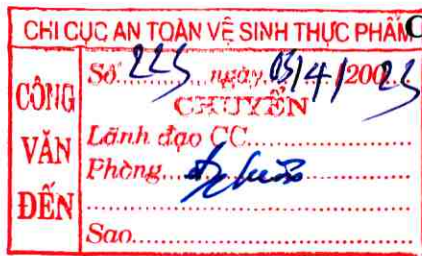 CHI CỤC AN TOÀN VỆ SINH THỰC PHẨM
CÔNG VĂN ĐẾN
Số 223 ngày 03/4/2023
CHUYỂN
Lãnh đạo CC
Phòng
Sao